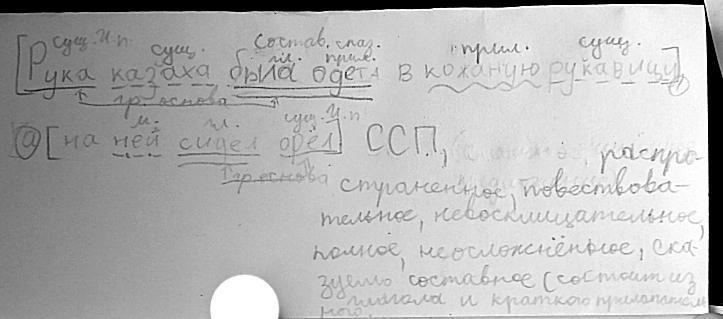 сущ. И.п. сущ. Состав. глаг. прил. сущ.
гл. прил.
[Рука казаха была одета в кожаную рукавицу] 1
гр основа
м. гл. сущ. И.п
а [на ней сидел орёл] ССП, распро-
гр основа
страненное, повествова-
тельное, невосклицательное,
полное, неосложнённое, ска-
зуемо составное (состоит из
глагола и краткого прилагатель
ного.